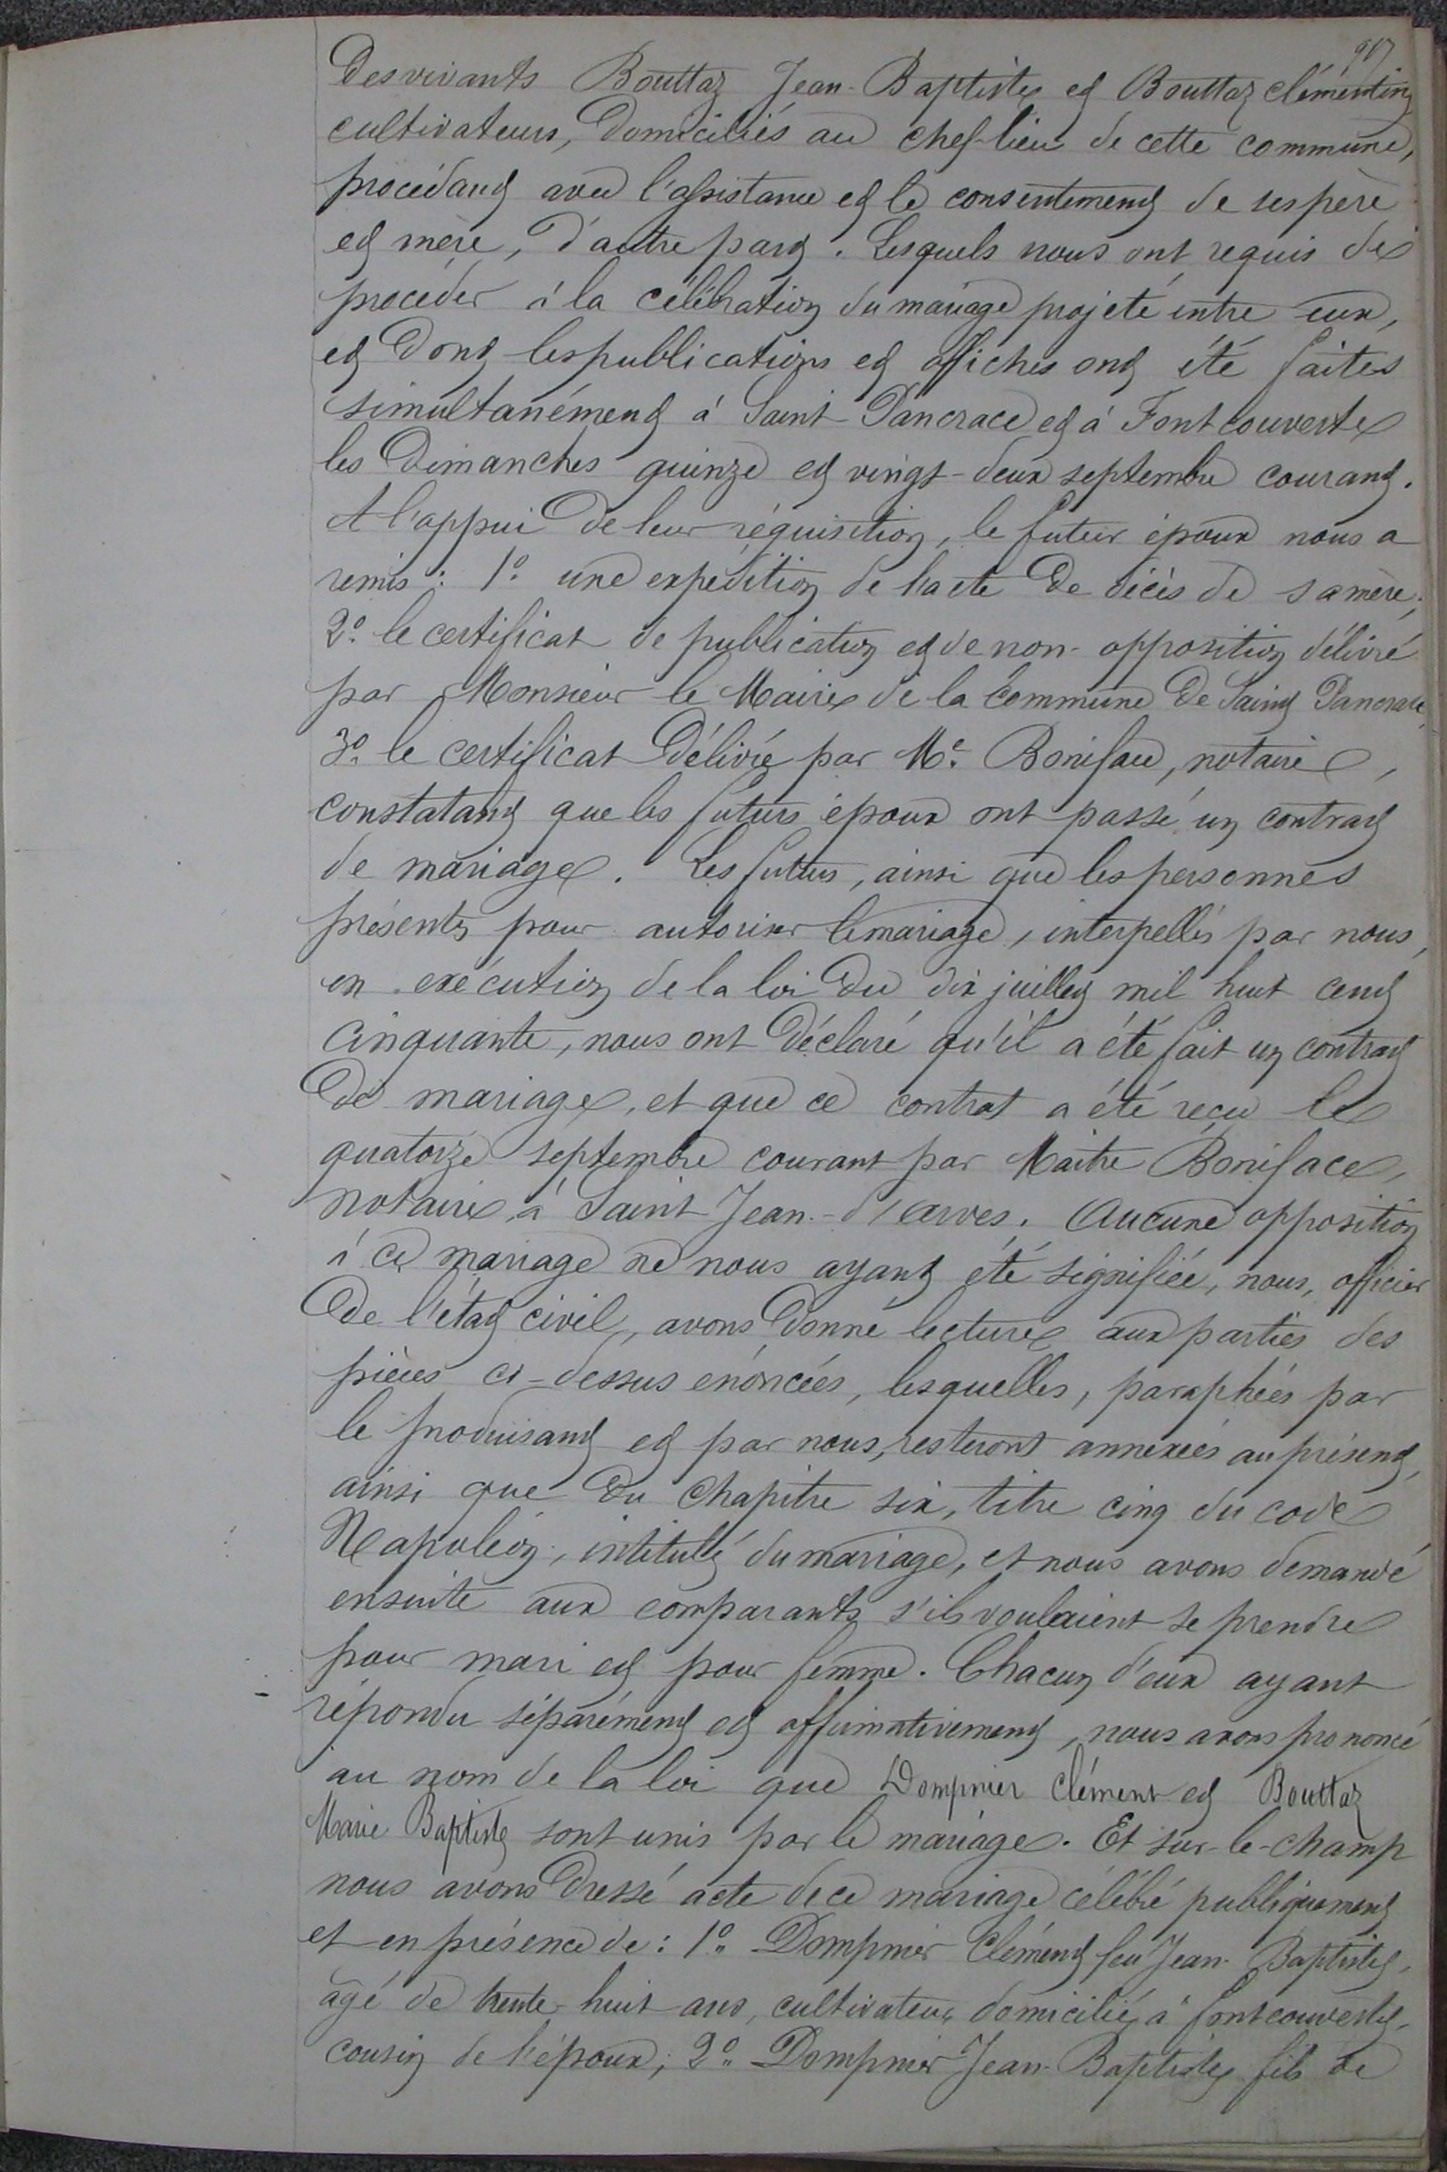 des vivants Bouttaz Jean-Baptiste et Bouttaz Clémentine
cultivateurs, domiciliés au chef-lieu de cette commune,
procédant avec l'assistance et le consentement de ses père
et mère, d'autre part. Lesquels nous ont requis de
procéder à la célébration du mariage projeté entre eux,
et dont les publications et affiches ont été faites
simultanément à Saint-Pancrace et à Fontcouverte
les dimanches quinze et vingt-deux septembre courant.
A l'appui de leur réquisition, le futur époux nous a
remis: 1º une expédition de l'acte de décès de sa mère;
2º le certificat de publication et de non-opposition délivré
par Monsieur le Maire de la Commune de Saint Pancrace
3º le certificat délivré par Me Boniface, notaire,
constatant que les futurs époux ont passé un contrat
de mariage. Les futurs, ainsi que les personnes
présentes pour autoriser le mariage, interpellés par nous,
en exécution de la loi du dix juillet mil huit cent
cinquante, nous ont déclaré qu'il a été fait un contrat
de mariage, et que ce contrat a été reçu le
quatorze septembre courant par Maître Boniface,
notaire à Saint Jean-d'Arves. Aucune opposition
à ce mariage ne nous ayant été signifiée, nous, officier
de l'état civil, avons donné lecture aux parties des
pièces ci-dessus énoncées, lesquelles, paraphées par
le produisant et par nous, resteront annexées au présent,
ainsi que du chapitre six, titre cinq du code
Napoléon, intitulé du mariage, et nous avons demandé
ensuite aux comparants s'ils voulaient se prendre
pour mari et pour femme. Chacun d'eux ayant
répondu séparément et affirmativement, nous avons prononcé
au nom de la loi que Dompnier Clément et Bouttaz
Marie Baptiste sont unis par le mariage. Et sur-le-champ
nous avons dressé acte de ce mariage célébré publiquement
et en présence de: 1º Dompnier Clément feu Jean-Baptiste,
âgé de trente-huit ans, cultivateur domicilié à fontcouverte,
cousin de l'époux; 2º Dompnier Jean-Baptiste fils de